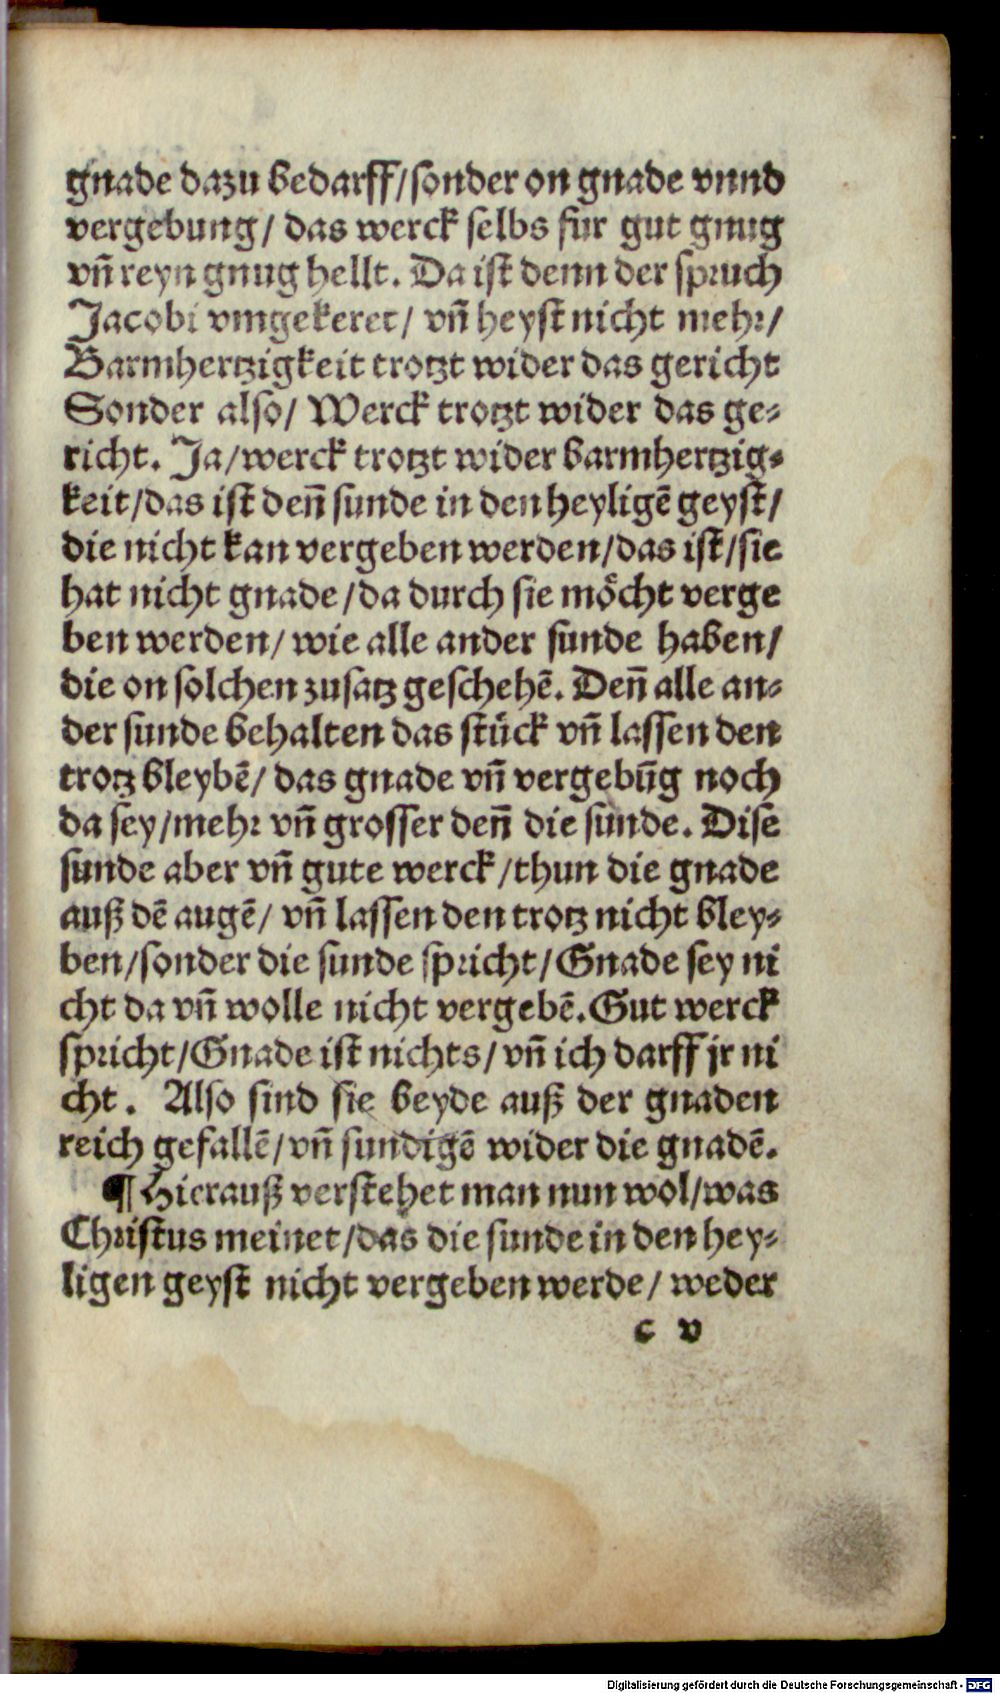 gnade dazu bedarff/sonder on gnade vnnd
vergebung/ das werck selbs fur gut gnug
vñ reyn gnug hellt. Da ist denn der spruch
Jacobi vmgekeret/ vñ heyst nicht mehr/
Barmhertzigkeit trotzt wider das gericht
Sonder also/ Werck trotzt wider das ge-
richt. Ja/werck trotzt wider barmhertzig-
keit/das ist deñ sunde in den heyligē geyst/
die nicht kan vergeben werden/das ist/sie
hat nicht gnade/da durch sie moͤcht verge
ben werden/ wie alle ander sunde haben/
die on solchen zusatz geschehē. Deñ alle an-
der sunde behalten das stuͤck vñ lassen den
trotz bleybē/ das gnade vñ vergebūg noch
da sey/mehr vñ grosser deñ die sunde. Dise
sunde aber vñ gute werck/thun die gnade
auß dē augē/ vñ lassen den trotz nicht bley-
ben/sonder die sunde spricht/Gnade sey ni
cht da vñ wolle nicht vergebē. Gut werck
spricht/Gnade ist nichts/vñ ich darff jr ni
cht. Also sind sie beyde auß der gnaden
reich gefallē/vñ sundigē wider die gnadē.
¶ Hierauß verstehet man nun wol/was
Christus meinet/das die sunde in den hey-
ligen geyst nicht vergeben werde/ weder
c v
Digitalisierung gefördert durch die Deutsche Forschungsgemeinschaft - DFG